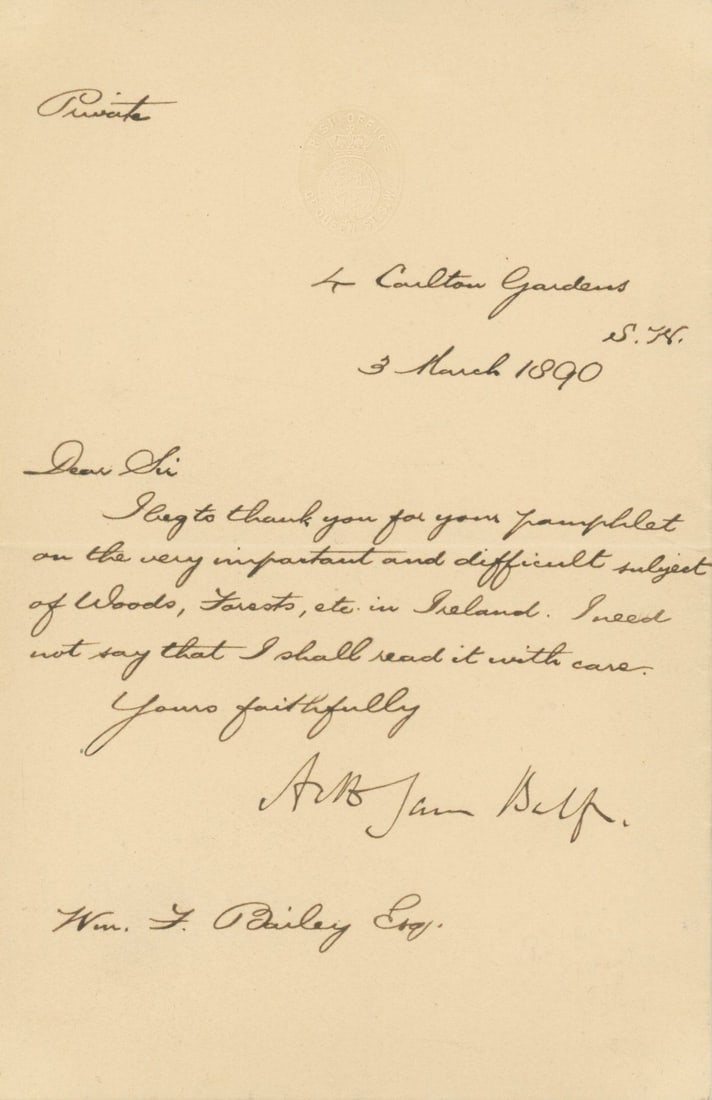 Private
IRISH OFFICE
QUEEN ST. S.W.
4 Carlton Gardens
S.W.
3 March 1890
Dear Sir
I beg to thank you for your pamphlet
on the very important and difficult subject
of Woods, Forests, etc. in Ireland. I need
not say that I shall read it with care.
Yours faithfully
Arth James Balf.
Wm. F. Bailey Esq.